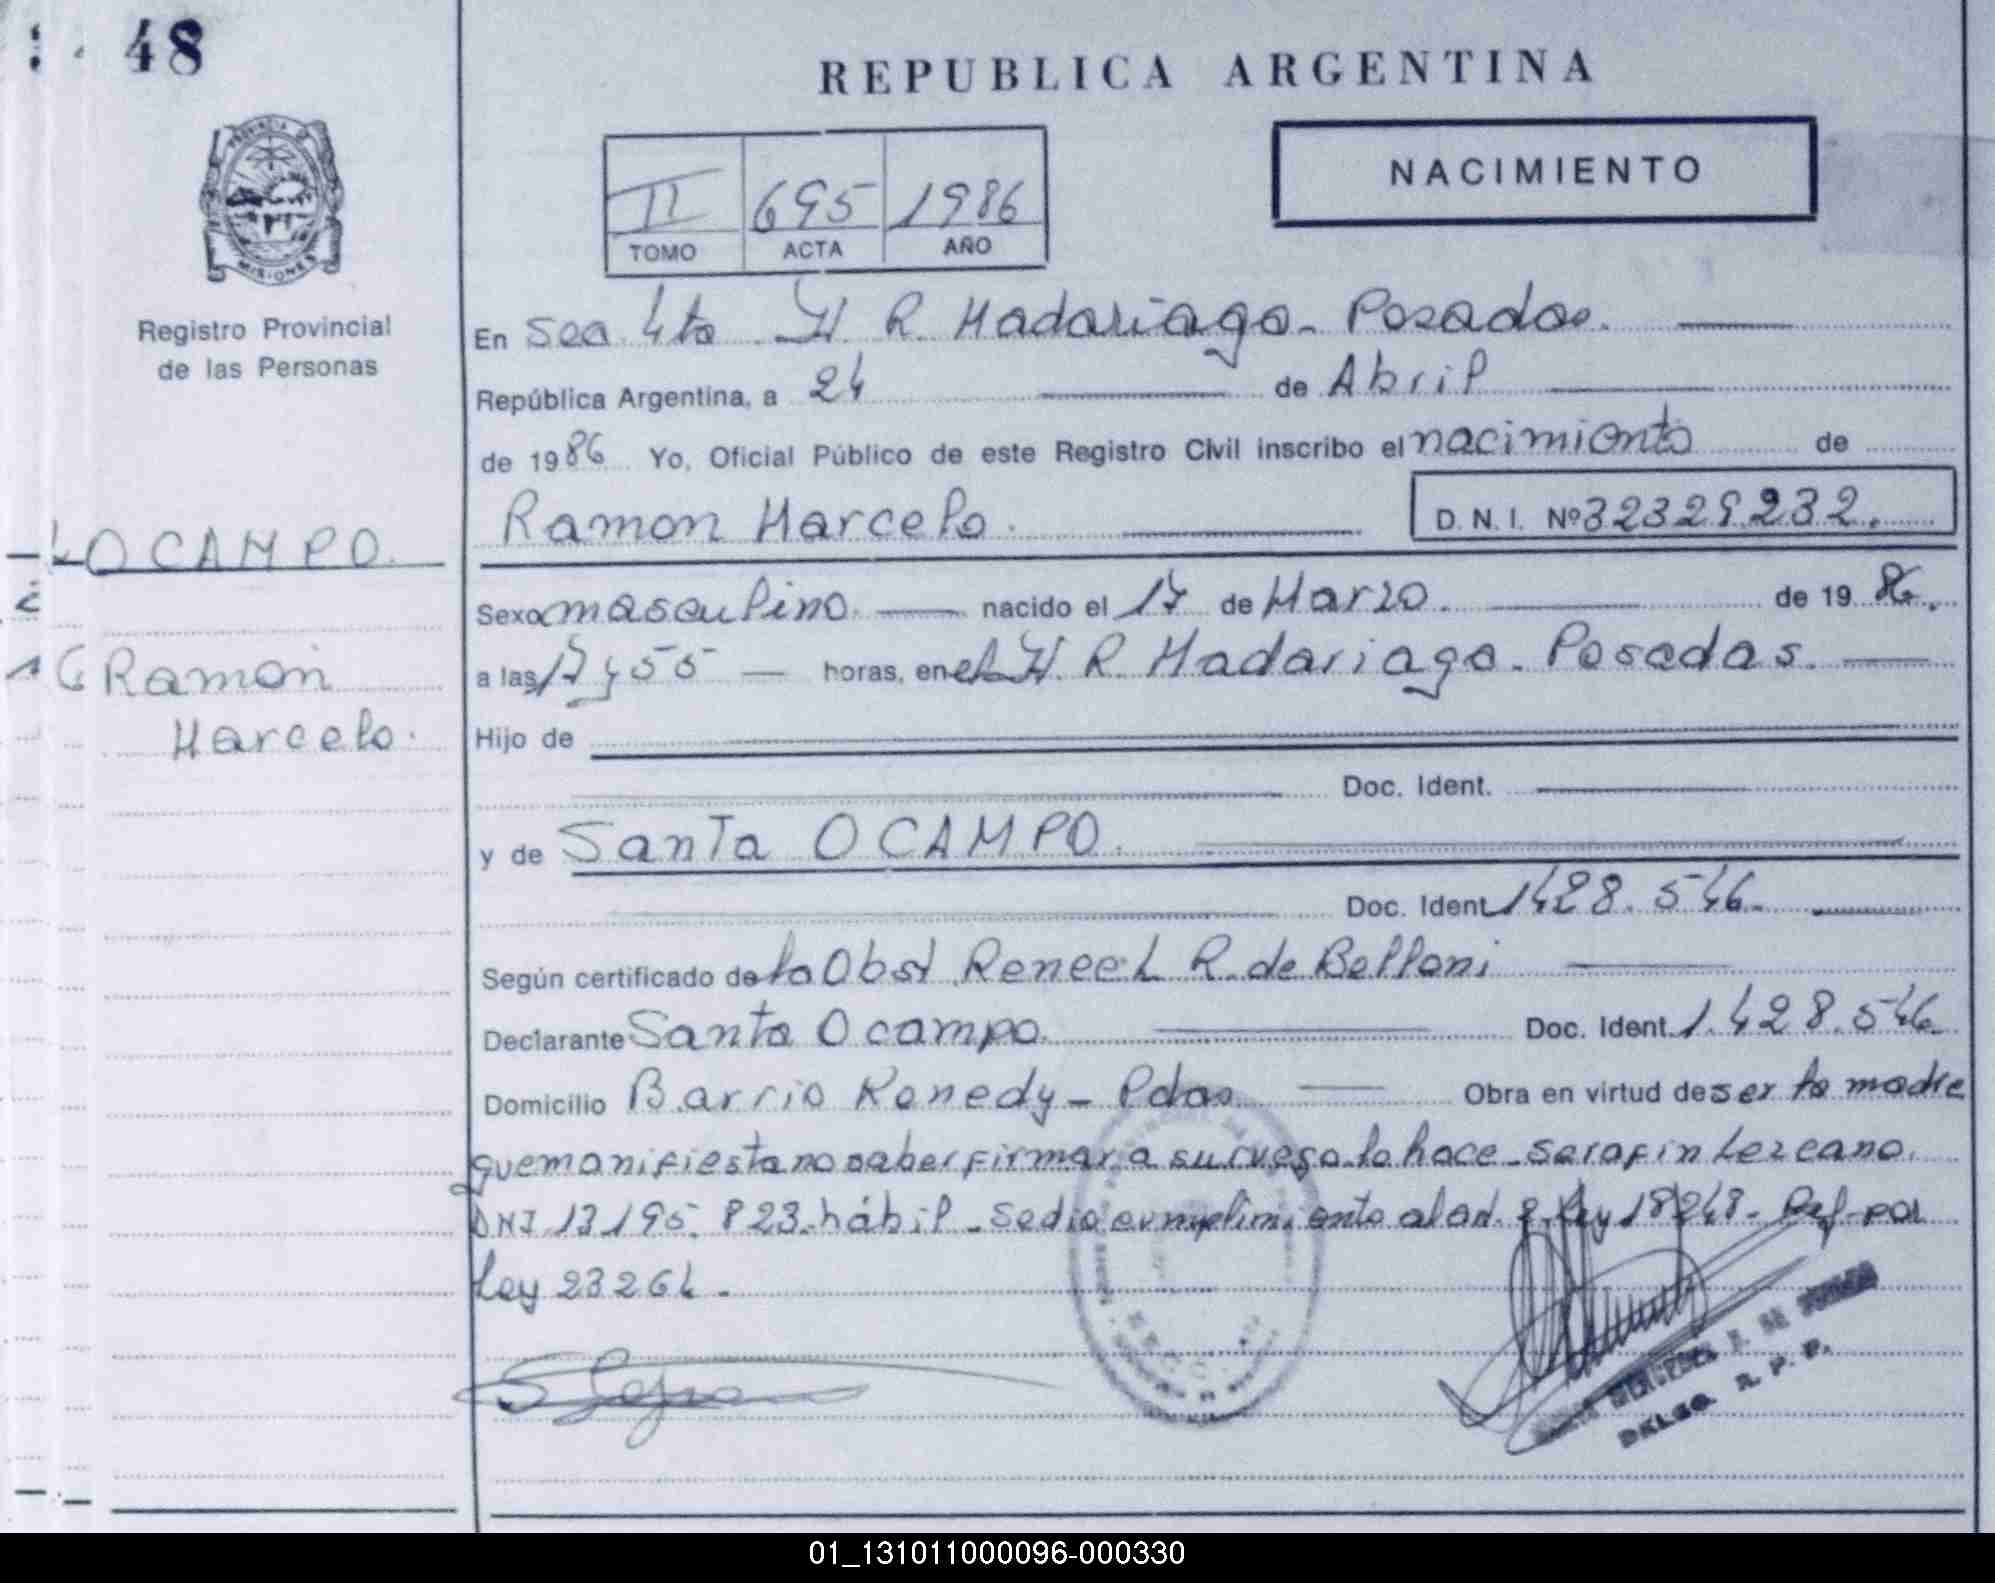 48
REPUBLICA ARGENTINA
NACIMIENTO
II 695 1986
TOMO ACTA AÑO
PROVINCIA DE
MISIONES
Registro Provincial
de las Personas
En Sea 4ta H. R. Madariaga - Posadas.
República Argentina, a 24 de Abril
de 1986 Yo, Oficial Público de este Registro Civil inscribo el nacimiento de
Ramon Marcelo. D. N. I. Nº 32329232.
OCAMPO.
Sexo masculino. nacido el 17 de Marzo. de 19 86.
Ramon
Marcelo.
a las 17 y 55 horas, en el H. R. Madariaga - Posadas.
Hijo de
Doc. Ident.
y de Santa OCAMPO.
Doc. Ident. 1428.546.
Según certificado de la Obst Renee L R. de Belloni
Declarante Santa Ocampo. Doc. Ident. 1.428.546
Domicilio Barrio Kenedy - Pdas. Obra en virtud de ser la madre
que manifiesta no saber firmar, a su ruego lo hace - Serafin Lezcano.
DNI 13195 823 hábil - se dio cumplimiento al art. 2 - Ley 18248 - Ref - por
Ley 23264.
DELEG. R. P. P.
01_131011000096-000330